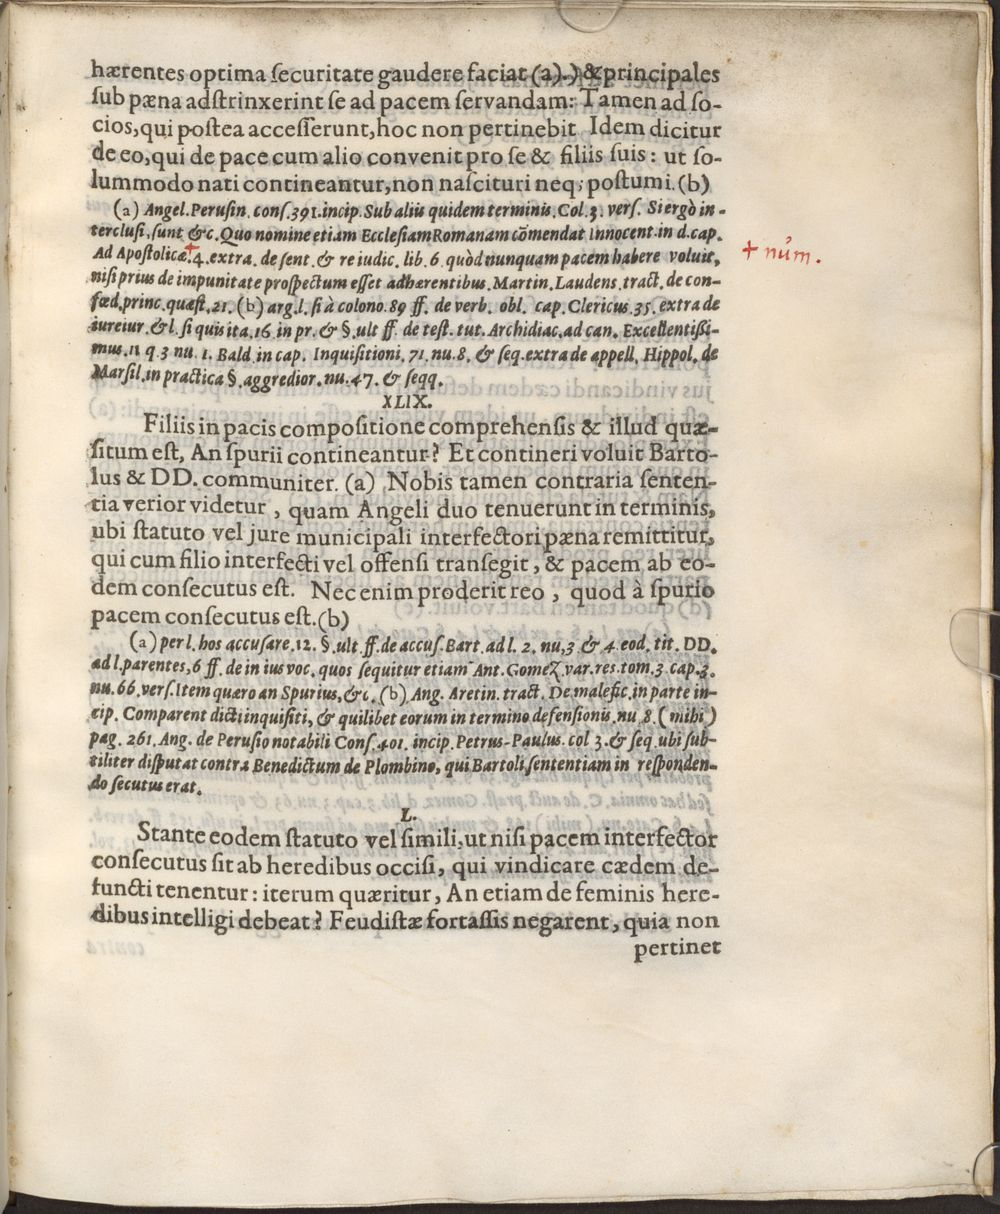 hærentes optima ſecuritate gaudere faciat (a).) & principales
ſub pæna adſtrinxerint ſe ad pacem ſervandam: Tamen ad ſo-
cios, qui poſtea acceſſerunt, hoc non pertinebit Idem dicitur
de eo, qui de pace cum alio convenit pro ſe & filiis ſuis: ut ſo-
lummodo nati contineantur, non naſcituri neq; poſtumi. (b)
(a) Angel. Peruſin. conſ. 391. incip. Sub aliis quidem terminis. Col. 3. verſ. Si ergò in-
tercluſi, ſunt &c. Quo nomine etiam Eccleſiam Romanam cōmendat Innocent. in d. cap.
Ad Apoſtolicæ. + 4. extra. de ſent. & re iudic. lib. 6. quòd nunquam pacem habere voluit,
niſi prius de impunitate proſpectum eſſet adhærentibus. Martin. Laudens. tract. de con-
fœd. princ. quæſt. 21. (b) arg. l. ſi à colono. 89 ff. de verb. obl. cap. Clericus. 35. extra de
iureiur. & l. ſi quis ita. 16. in pr. & §. ult ff. de teſt. tut. Archidiac. ad can. Excellentißi-
mus. 11 q. 3 nu. 1. Bald. in cap. Inquiſitioni, 71. nu. 8. & ſeq. extra de appell. Hippol. de
Marſil. in practica §. aggredior. nu. 47. & ſeqq.
+ núm.
XLIX.
Filiis in pacis compoſitione comprehenſis & illud quæ-
ſitum eſt, An ſpurii contineantur? Et contineri voluit Barto-
lus & DD. communiter. (a) Nobis tamen contraria ſenten-
tia verior videtur, quam Angeli duo tenuerunt in terminis,
ubi ſtatuto vel jure municipali interfectori pæna remittitur,
qui cum filio interfecti vel offenſi tranſegit, & pacem ab eo-
dem conſecutus eſt. Nec enim proderit reo, quod à ſpurio
pacem conſecutus eſt. (b)
(a) per l. hos accuſare. 12. §. ult. ff. de accuſ. Bart. ad l. 2. nu, 3 & 4 eod. tit. DD.
ad l. parentes, 6 ff. de in ius voc. quos ſequitur etiam Ant. Gomez. var. res. tom. 3. cap. 3.
nu. 66. verſ. Item quæro an Spurius, &c. (b) Ang. Aretin. tract. De malefic. in parte in-
cip. Comparent dicti inquiſiti, & quilibet eorum in termino defenſionis. nu 8. (mihi)
pag. 261. Ang. de Peruſio notabili Conſ. 401. incip. Petrus-Paulus. col 3. & ſeq. ubi ſub-
tiliter diſputat contra Benedictum de Plombino, qui Bartoli ſententiam in reſponden-
do ſecutus erat.
L.
Stante eodem ſtatuto vel ſimili, ut niſi pacem interfector
conſecutus ſit ab heredibus occiſi, qui vindicare cædem de-
functi tenentur: iterum quæritur, An etiam de feminis here-
dibus intelligi debeat? Feudiſtæ fortaſſis negarent, quia non
pertinet